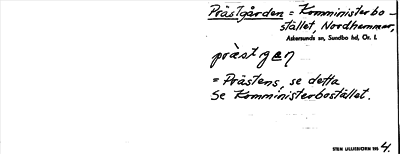 Prästgården = Komministerbo-
stället, Nordhammar,
Askersunds sn, Sundbo hd, Ör. l.
prästgen
= Prästens, se detta
Se Komministerbostället.
STEN LILLIEBJÖRN 195 4.